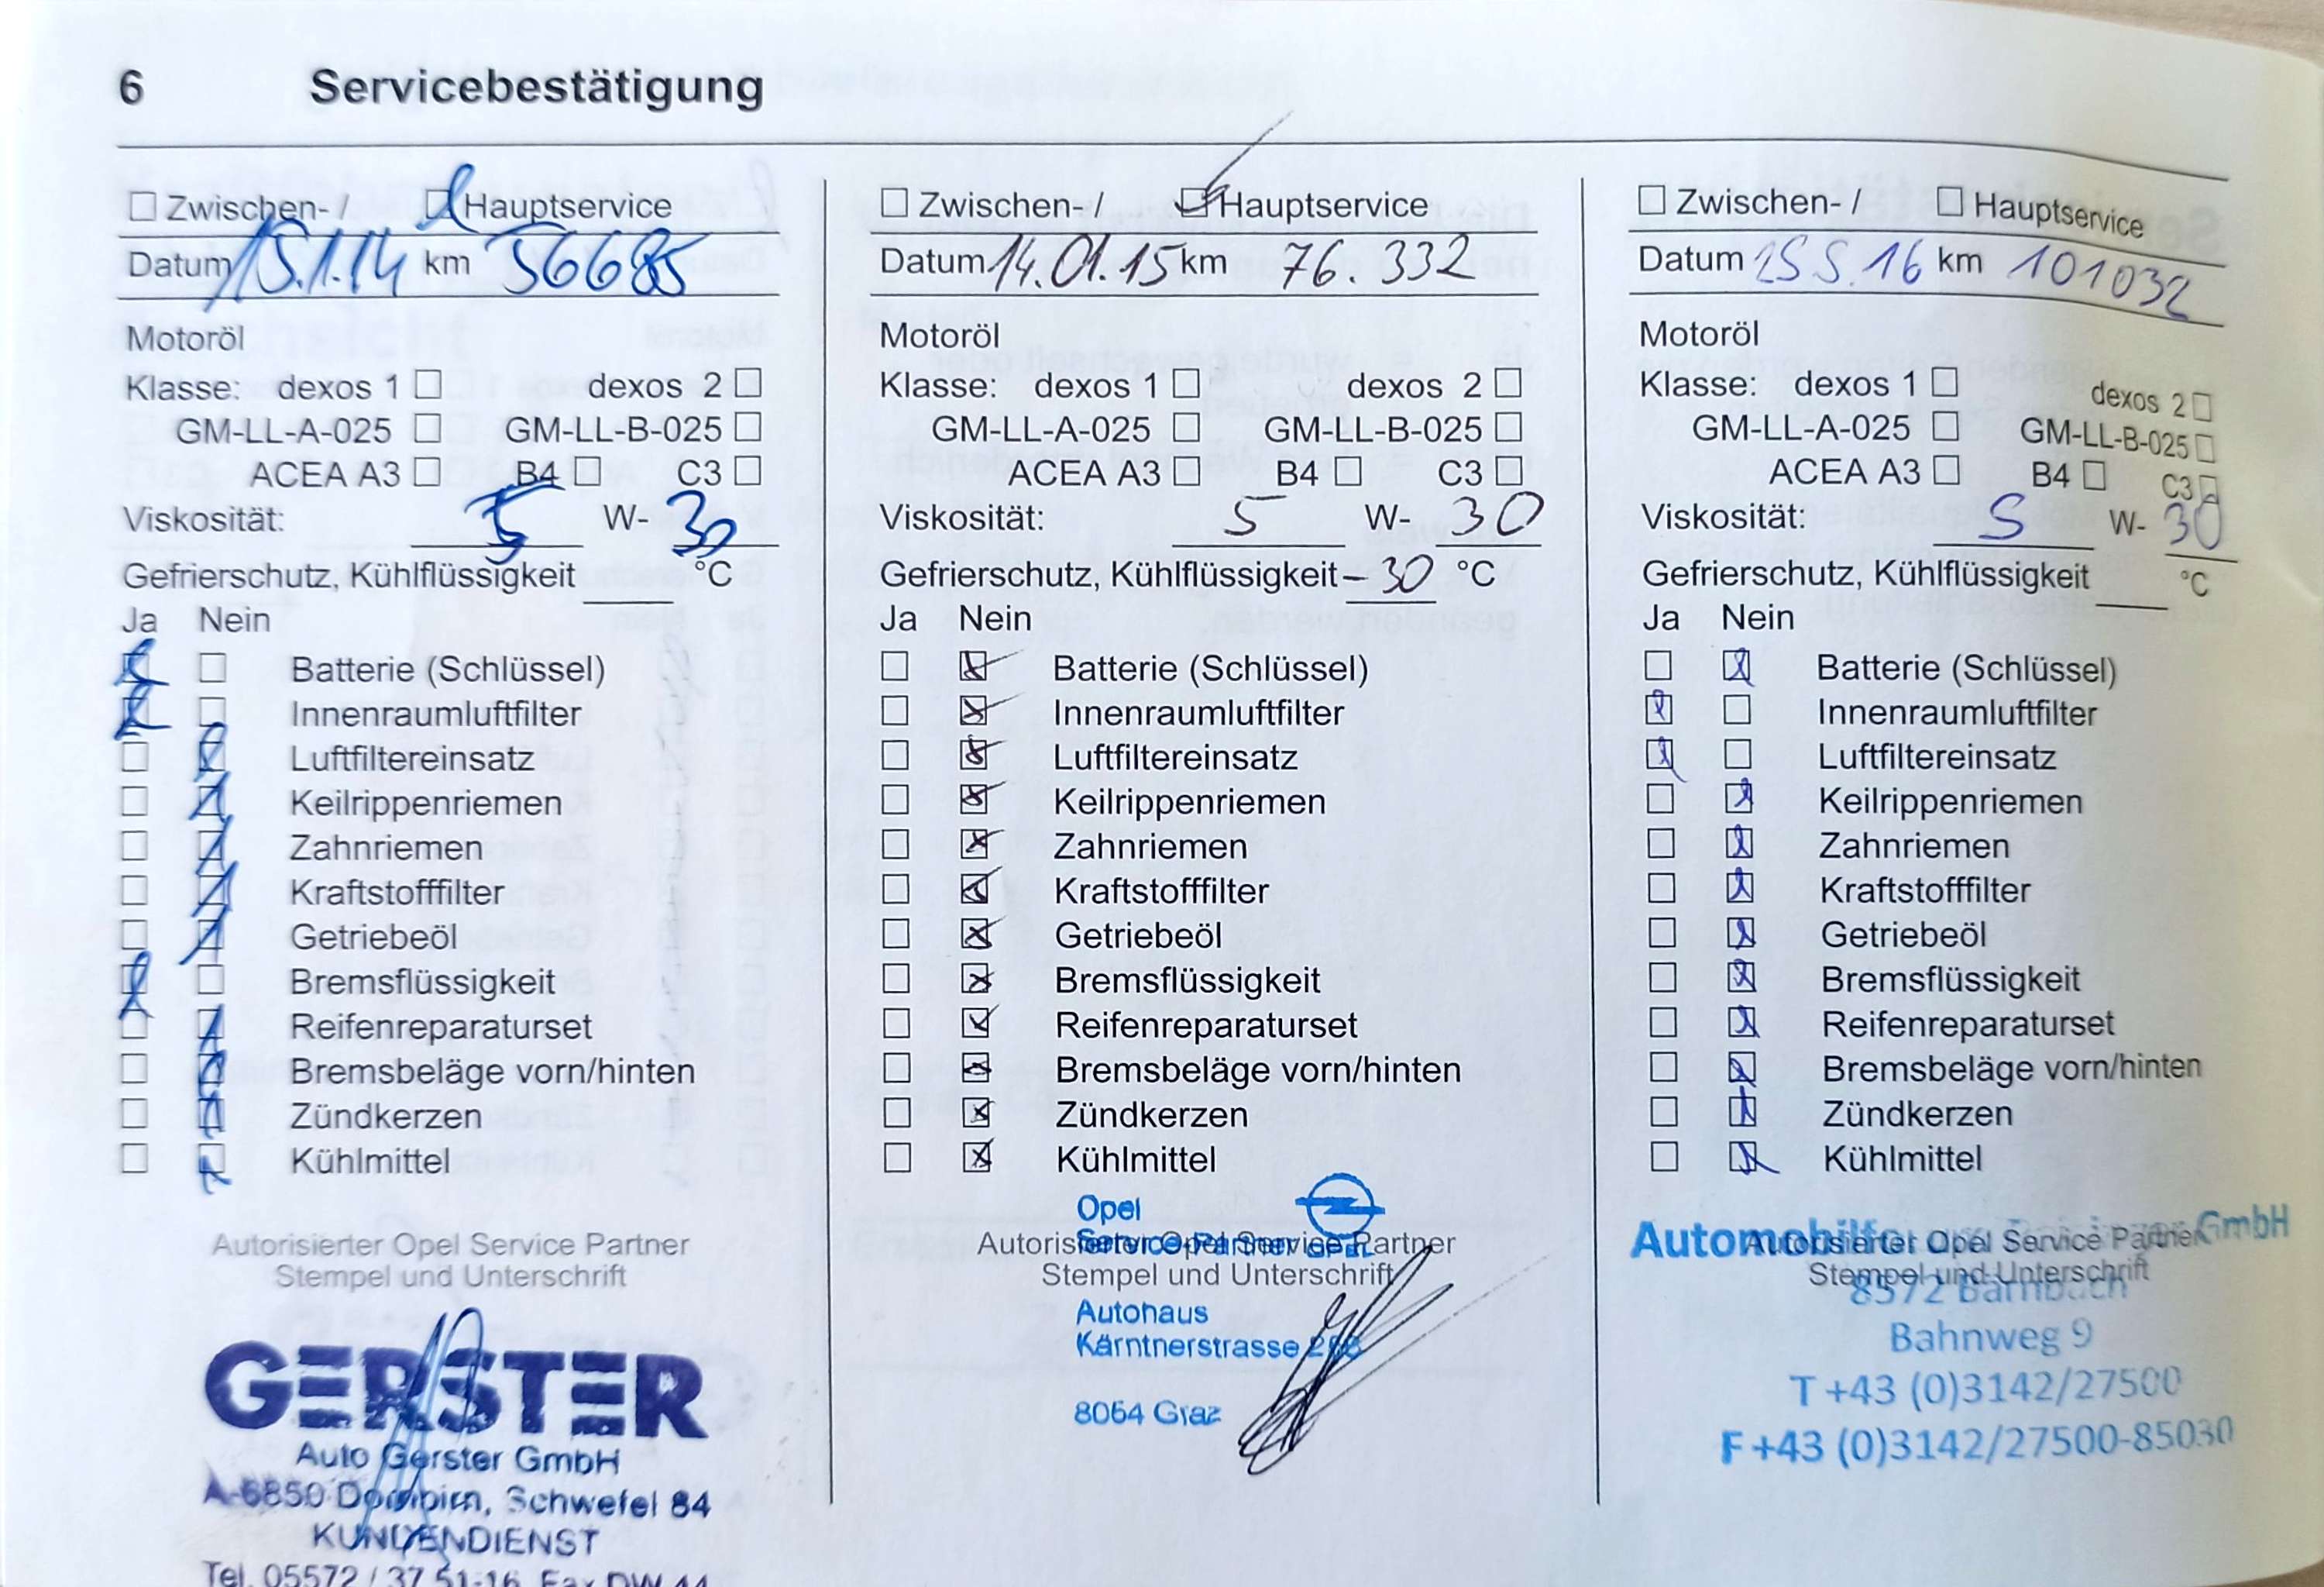 6 Servicebestätigung
☐ Zwischen- / ☒ Hauptservice
Datum 15.1.14 km 56685
Motoröl
Klasse: dexos 1 ☐ dexos 2 ☐
GM-LL-A-025 ☐ GM-LL-B-025 ☐
ACEA A3 ☐ B4 ☐ C3 ☐
Viskosität: 5 W- 30
Gefrierschutz, Kühlflüssigkeit ____ °C
Ja Nein
☒ ☐ Batterie (Schlüssel)
☒ ☐ Innenraumluftfilter
☐ ☒ Luftfiltereinsatz
☐ ☒ Keilrippenriemen
☐ ☒ Zahnriemen
☐ ☒ Kraftstofffilter
☐ ☒ Getriebeöl
☒ ☐ Bremsflüssigkeit
☐ ☒ Reifenreparaturset
☐ ☒ Bremsbeläge vorn/hinten
☐ ☒ Zündkerzen
☐ ☒ Kühlmittel
Autorisierter Opel Service Partner
Stempel und Unterschrift
GERSTER
Auto Gerster GmbH
A-6850 Dornbirn, Schwefel 84
KUNDENDIENST
Tel. 05572 / 37 51-16, Fax DW 44
☐ Zwischen- / ☒ Hauptservice
Datum 14.01.15 km 76.332
Motoröl
Klasse: dexos 1 ☐ dexos 2 ☐
GM-LL-A-025 ☐ GM-LL-B-025 ☐
ACEA A3 ☐ B4 ☐ C3 ☐
Viskosität: 5 W- 30
Gefrierschutz, Kühlflüssigkeit – 30 °C
Ja Nein
☐ ☒ Batterie (Schlüssel)
☐ ☒ Innenraumluftfilter
☐ ☒ Luftfiltereinsatz
☐ ☒ Keilrippenriemen
☐ ☒ Zahnriemen
☐ ☒ Kraftstofffilter
☐ ☒ Getriebeöl
☐ ☒ Bremsflüssigkeit
☐ ☒ Reifenreparaturset
☐ ☒ Bremsbeläge vorn/hinten
☐ ☒ Zündkerzen
☐ ☒ Kühlmittel
Opel
Service Partner OPEL
Autorisierter Opel Service Partner
Stempel und Unterschrift
Autohaus
Kärntnerstrasse
8054 Graz
☐ Zwischen- / ☐ Hauptservice
Datum 25 5. 16 km 101032
Motoröl
Klasse: dexos 1 ☐ dexos 2 ☐
GM-LL-A-025 ☐ GM-LL-B-025 ☐
ACEA A3 ☐ B4 ☐ C3 ☐
Viskosität: 5 W- 30
Gefrierschutz, Kühlflüssigkeit ____ °C
Ja Nein
☐ ☒ Batterie (Schlüssel)
☒ ☐ Innenraumluftfilter
☒ ☐ Luftfiltereinsatz
☐ ☒ Keilrippenriemen
☐ ☒ Zahnriemen
☐ ☒ Kraftstofffilter
☐ ☒ Getriebeöl
☐ ☒ Bremsflüssigkeit
☐ ☒ Reifenreparaturset
☐ ☒ Bremsbeläge vorn/hinten
☐ ☒ Zündkerzen
☐ ☒ Kühlmittel
GmbH
Autorisierter Opel Service Partner
Stempel und Unterschrift
8572 Bärnbach
Bahnweg 9
T +43 (0)3142/27500
F +43 (0)3142/27500-85030